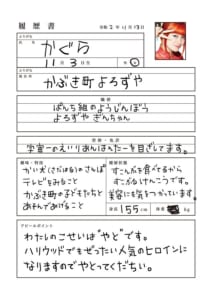 履歴書
令和2年11月13日
ふりがな
氏名
かぐら
11月3日
かぶき町よろずや
職歴
ぱんち組のようじんぼう
よろずや ぎんちゃん
宇宙一のえいりあんはんたーを目ざしてます。
趣味・特技
かい犬（さだはる）のさんぽ
テレビをみること
かぶき町の子どもたちと
あそんであげること
健康状態
すこんぶを食べてるから
すこぶるけんこうです。
美容にも気をつかっています。
身長 155 cm
体重
kg
アピールポイント
わたしのこせいは“やと”です。
ハリウッドでもぜったい人気のヒロインに
なりますのでやとってくだちい。